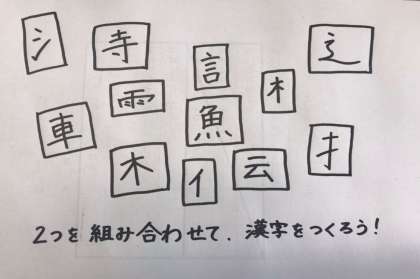 氵 寺 言 辶
雨 木
車 魚 扌
木 亻 云
2つを組み合わせて、漢字をつくろう!